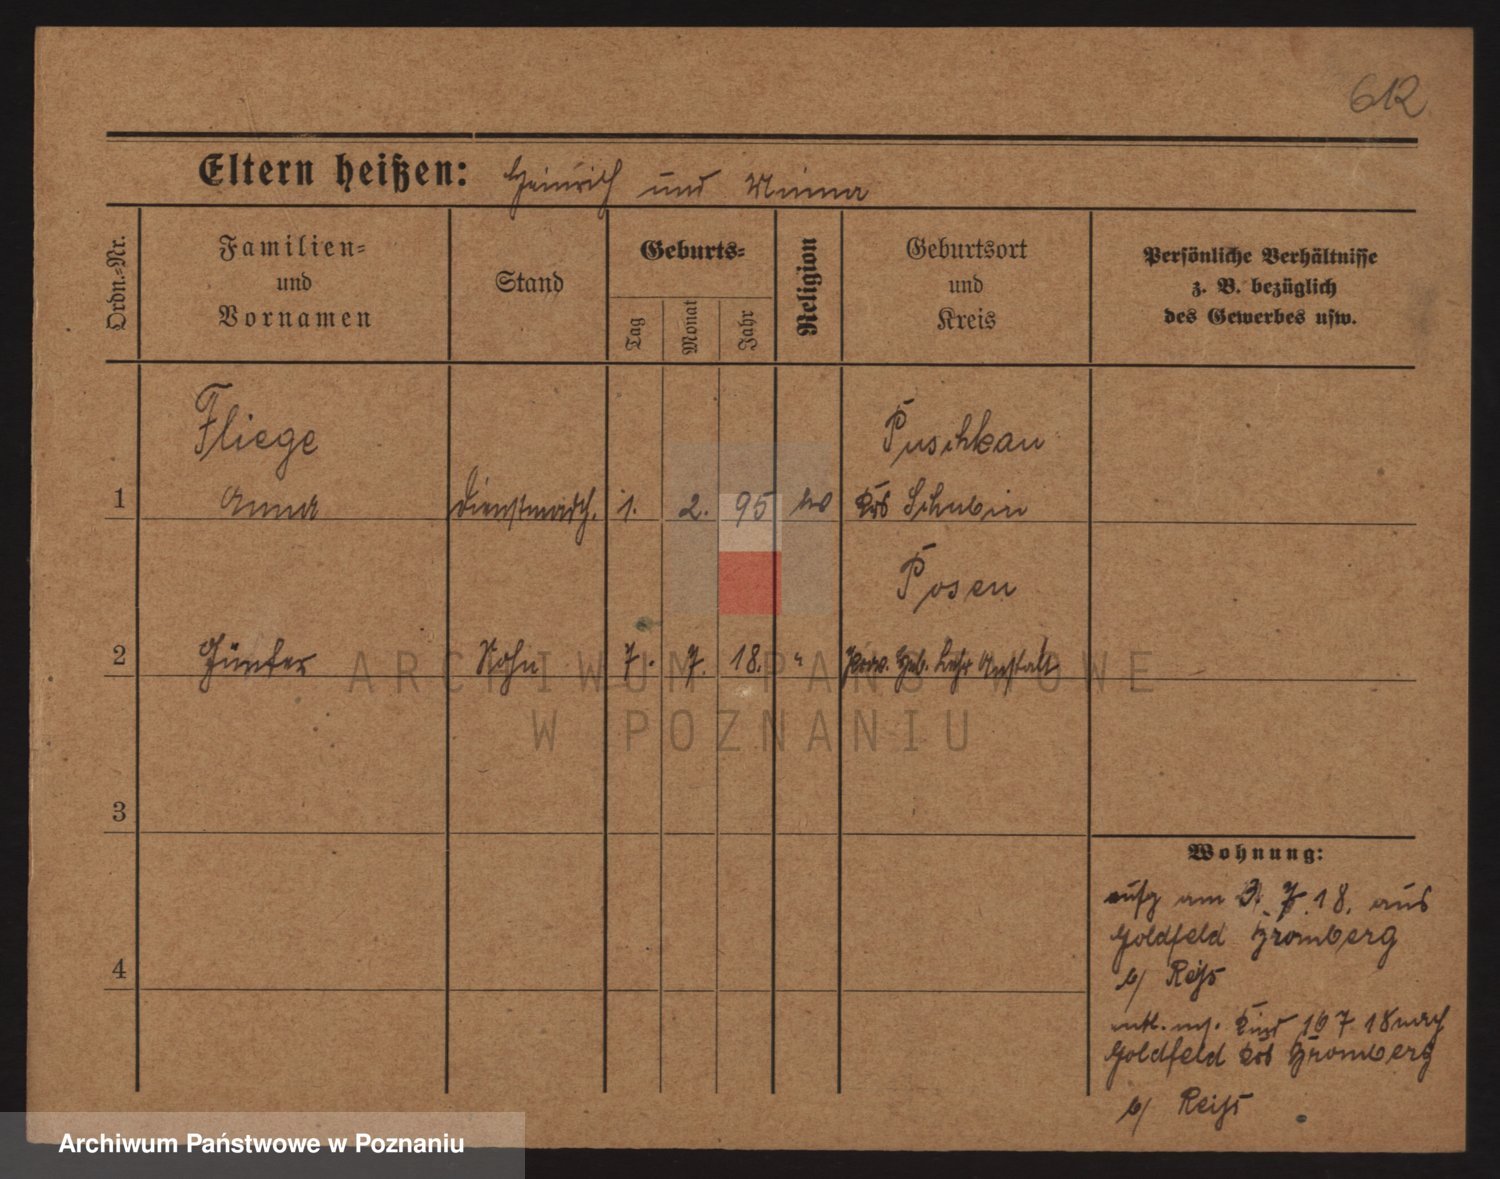 612
Eltern heißen: Heinrich und Minna
Ordn.=Nr.
Familien=
und
Vornamen
Stand
Geburts=
Tag
Monat
Jahr
Religion
Geburtsort
und
Kreis
Persönliche Verhältnisse
z. B. bezüglich
des Gewerbes usw.
Fliege
Puschkau
1 Anna Dienstmdch. 1. 2. 95 ev Krs Schubin
Posen
2 Günter Sohn 7. 7. 18. " Prov. Heb. Lehr Anstalt
3
4
Wohnung:
aufg am 3. 7. 18. aus
Goldfeld Bromberg
b/ Reiss
entl. mit Kind 16 7 18 nach
Goldfeld Krs Bromberg
b/ Reiss
ARCHIWUM PAŃSTWOWE
W POZNANIU
Archiwum Państwowe w Poznaniu